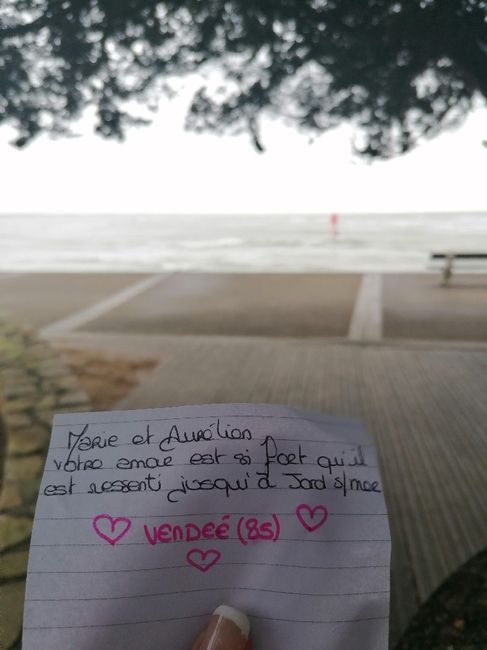 Marie et Aurélien
votre amour est si fort qu'il
est ressenti jusqu'à Jard s/mer
VENDEÉ (85)